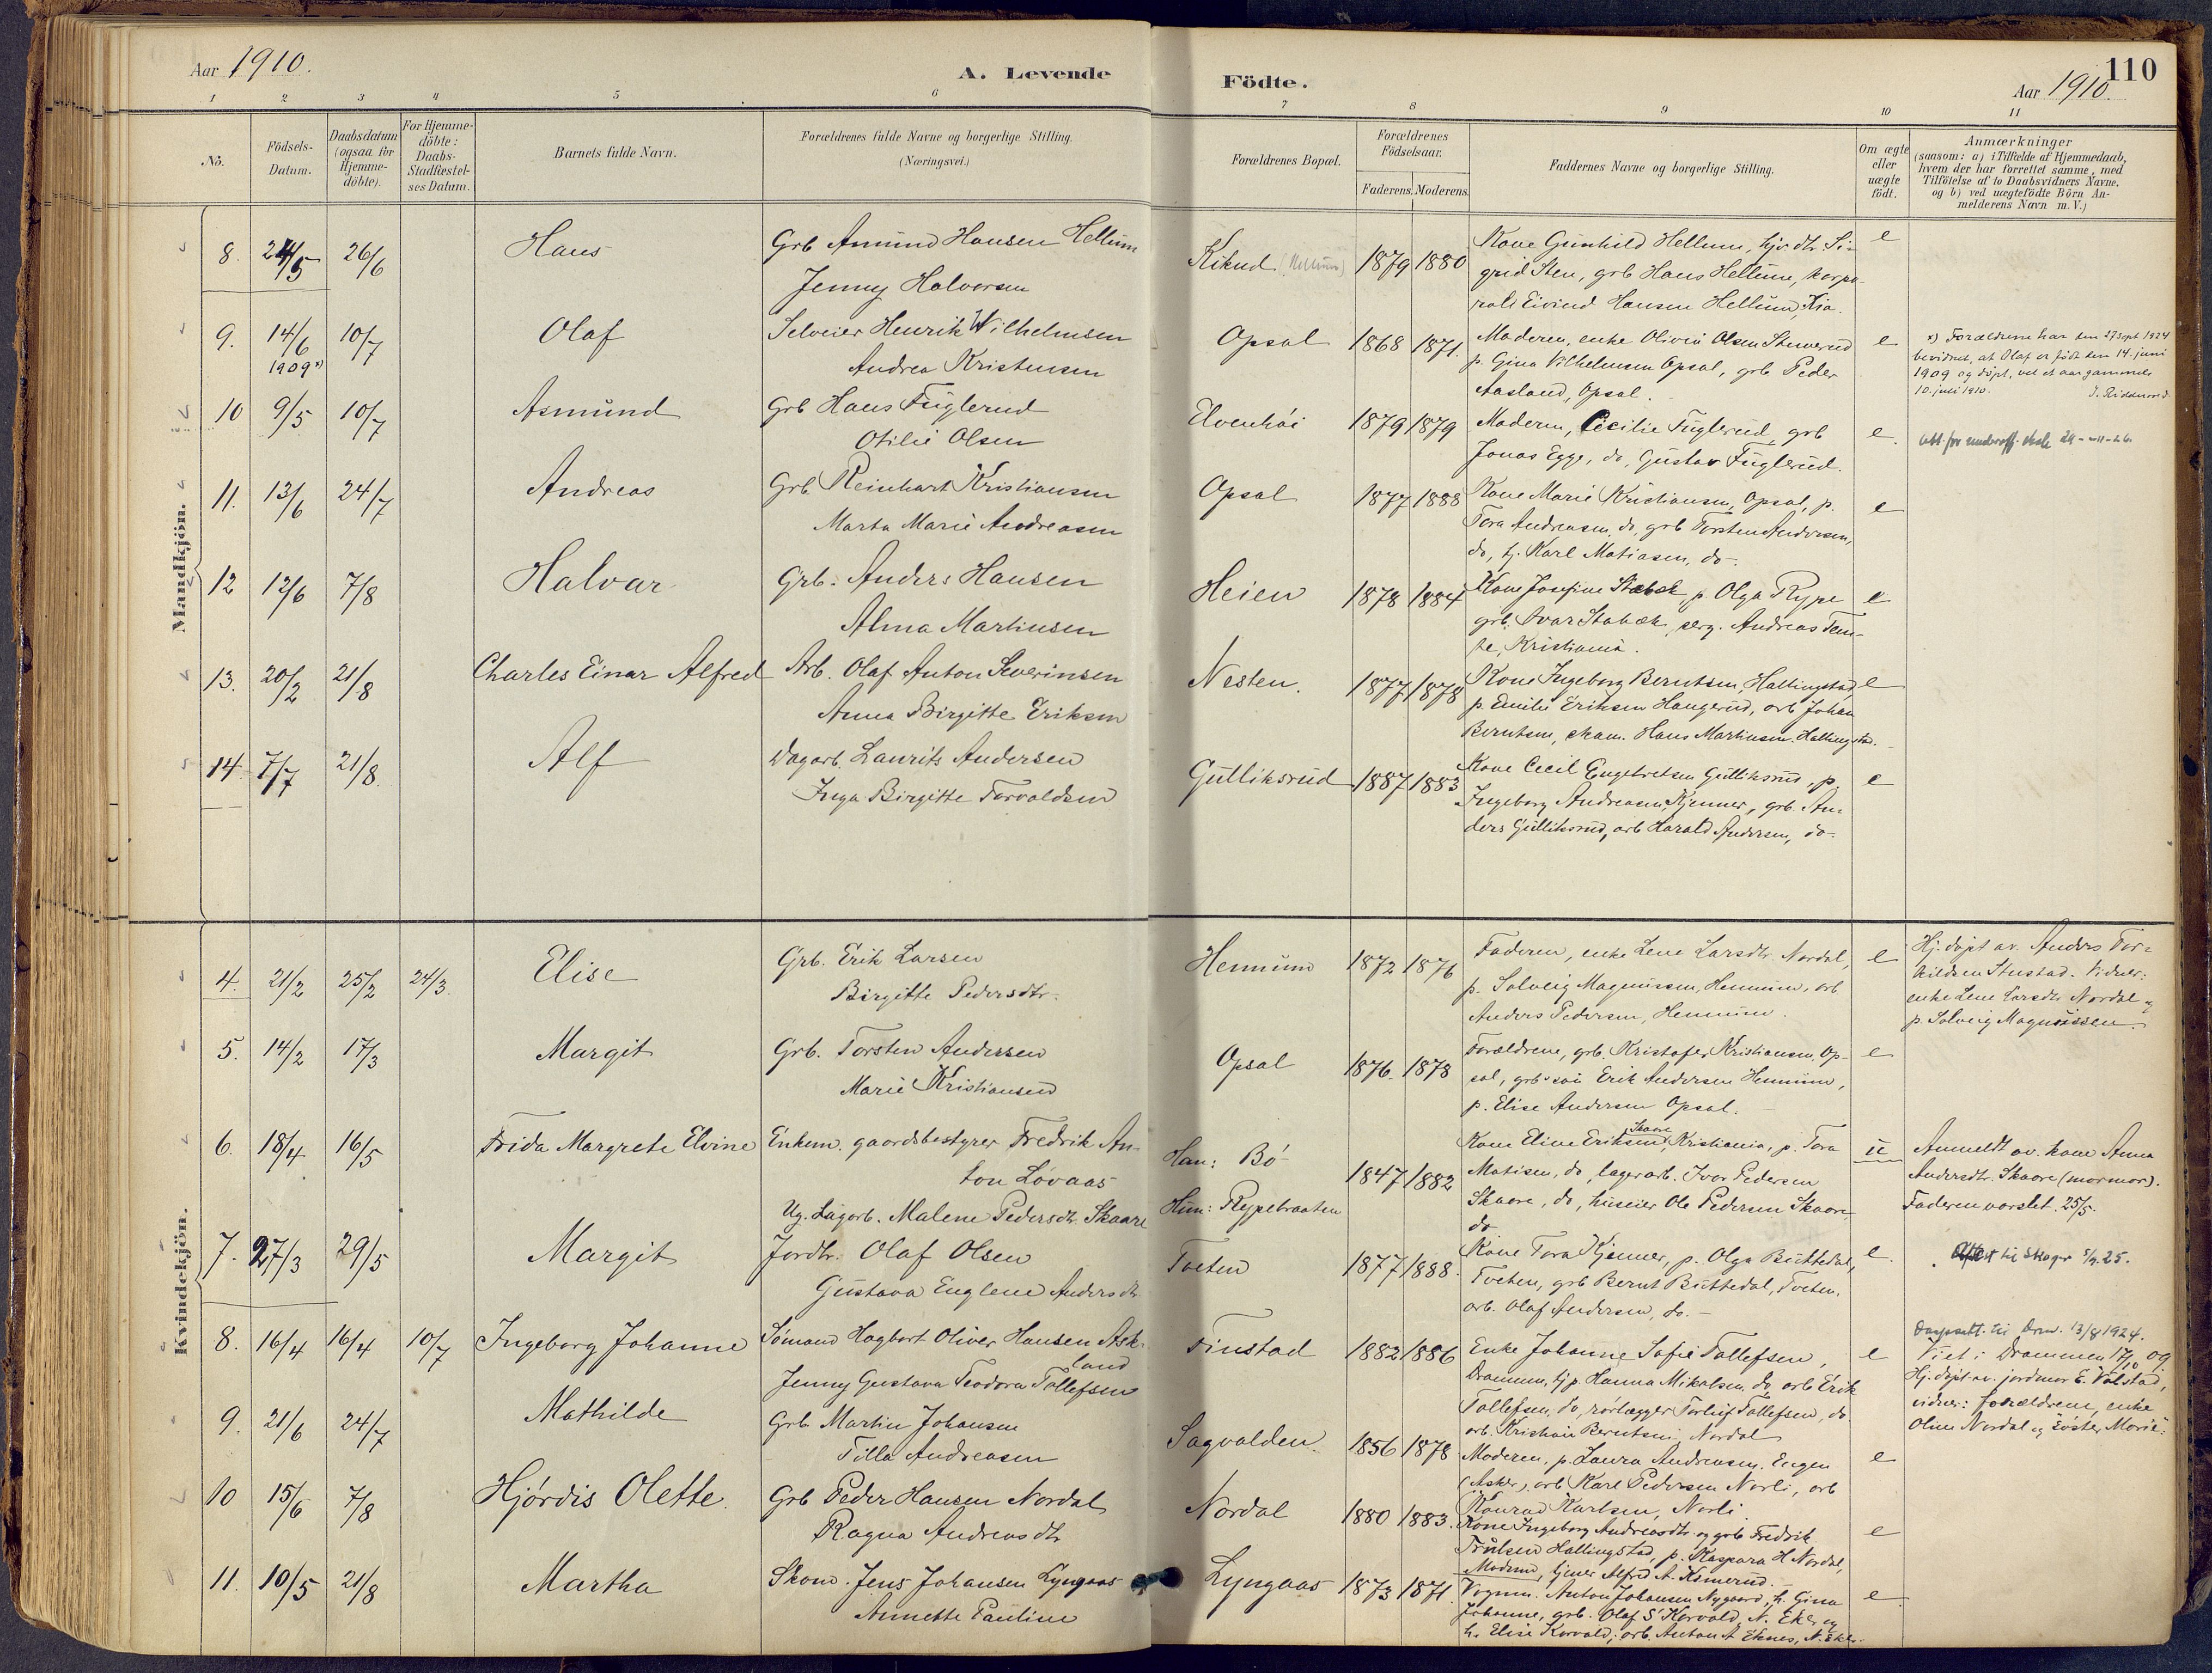 Aar 1910.
A. Levende
Födte.
Aar 1910.
110
1 2 3 4 5 6 7 8 9 10 11
No.
Födsels-
Datum.
Daabsdatum
(ogsaa for
Hjemme-
döbte).
For Hjemme-
döbte:
Daabs-
Stadfæstel-
ses Datum.
Barnets fulde Navn.
Forældrenes fulde Navne og borgerlige Stilling.
(Næringsvei.)
Forældrenes Bopæl.
Forældrenes
Födselsaar.
Faderens. Moderens.
Faddernes Navne og borgerlige Stilling.
Om ægte
eller
uægte
födt.
Anmærkninger
(saasom: a) i Tilfælde af Hjemmedaab,
hvem der har forrettet samme, med
Tilföielse af to Daabsvidners Navne,
og b) ved uægtefödte Börn An-
melderens Navn m. V.)
Mandkjön.
8. 24/5 26/6 Hans
Grb Amund Hansen Hellum
Jenny Halvorsen
Kikud (Hellum) 1879 1880
Kone Gunhild Hellum, hjv. dtr. Si-
grid Sten, grb Hans Hellum, korpo-
ral Eivind Hansen Hellum, Kra.
e
9. 14/6 1909 x) 10/7 Olaf
Selveier Henrik Wilhelmsen
Andrea Kristensen
Opsal 1868 1871.
Moderen, enke Olivia Olsen Stenerud
p. Gina Vilhelmsen Opsal, grb Peder
Aasland, Opsal.
e
x) Forældrene har den 27 sept 1924
bevidnet, at Olaf er født den 14. juni
1909 og døpt, vel et aar gammel
10. juli 1910.
J. Riddervold
10 9/5 10/7 Asmund
Grb Hans Fuglerud
Otilie Olsen
Elvenhöi 1879 1879
Moderen, Cecilie Fuglerud, grb
Jonas Egge, do, Gustav Fuglerud.
e.
11. 13/6 24/7 Andreas
Grb. Reinhart Kristiansen
Marta Marie Andreasen
Opsal 1877 1888
Kone Marie Kristiansen, Opsal, p.
Tora Andreasen, do, grb Torsten Andersen,
do, tj. Karl Matiasen, do.
e
12 12/6 7/8 Halvar
Grb. Anders Hansen
Alma Martinsen
Heien 1878 1884
Kone Josefine Stabæk p Olga Rype
grb. Ivar Stabæk, serg. Andreas Tem-
te, Kristiania.
e
13. 20/2 21/8 Charles Einar Alfred
Arb. Olaf Anton Severinsen
Anna Birgitte Eriksen
Nesten. 1877 1878
Kone Ingeborg Berntsen, Hallingstad
p. Emilie Eriksen Haugerud, arb Johan
Berntsen, skom. Hans Martinsen Hallingstad.
e
14. 7/7 21/8. Alf
Dagarb. Laurits Andersen
Inga Birgitte Torvaldsen
Gulliksrud 1887 1883
Kone Cecil Engebretsen Gulliksrud, p.
Ingeborg Andreasen, Kjenner, grb. An-
ders Gulliksrud, arb Harald Andersen, do.
e
Kvindekjön.
4. 21/2 25/2 24/3. Elise
Grb. Erik Larsen
Birgitte Pedersdtr.
Hennum 1872 1876
Faderen, enke Lene Larsdtr Nordal,
p. Solveig Magnussen, Hennum, arb
Anders Pedersen, Hennum.
e
Hj. døpt av Anders Tor-
kildsen Stustad. Vidner:
enke Lene Larsdtr Nordal og
p. Solveig Magnussen.
5. 14/2 17/3 Margit
Grb. Torsten Andersen
Marie Kristiansen
Opsal 1876. 1878
Forældrene, grb. Kristofer Kristiansen, Op-
sal, grb. søn Erik Andersen Hennum,
p. Elise Andersen Opsal.
e
6. 18/4 16/5 Frida Margrete Elvine
Enkem. gaardsbestyrer Fredrik An-
ton Løvaas
Ug. Lagarb. Malene Pedersdtr. Skaare
Han: Bö
Hun: Rypebraaten
1847 1882
Kone Eline Eriksen Skaare, Kristiania, p. Tora
Matisen, do, lagerarb. Ivar Pedersen
Skaare, do, huseier Ole Pedersen Skaare,
do
u
Anmeldt av. kone Anna
Andersdtr. Skaare (mormor).
Faderen varslet. 25/5.
7. 27/3 29/5 Margit
Jordbr. Olaf Olsen
Gustava Euglene Andersdtr
Tveten 1877 1888.
Kone Tora Kjenner, p. Olga Buttedal,
Tveten, grb Bernt Buttedal, Tveten,
arb. Olaf Andersen, do.
e.
8. 16/4 16/4 10/7 Ingeborg Johanne
Sømand Hagbart Oliver Hansen Ask-
land
Jenny Gustava Teodora Tollefsen
Finstad 1882 1886
Enke Johanne Sofie Tollefsen,
Drammen, tjp. Hanna Mikalsen, do, arb Erik
Tollefsen, do, rørlægger Torleif Tollefsen, do.
arb. Kristian Berntsen, Nordal
e
Daapsatt. til Drm. 13/8 1924.
Viet i Drammen 17/10 09
Hj. døpt av. jordmor E. Valstad,
vidner: forældrene, enke
Oline Nordal og søster Marie.
9. 21/6 24/7 Mathilde
Grb Martin Johansen
Tilla Andreasen
Sagvolden 1856 1878
Moderen, p. Laura Andreasen, Engen
(Asker), arb Karl Pedersen Norli, arb
Konrad Karlsen, Norli.
e
10 15/6 7/8 Hjördis Olette.
Grb Peder Hansen Nordal
Ragna Andreasdtr
Nordal 1880 1883.
Kone Ingeborg Andreasdtr. og grb Fredrik
Trulsen Hallingstad, p. Kaspara H Nordal,
Modum, tjener Alfred A.
e
11. 10/5 21/8 Martha
Skom. Jens Johansen Lyngaas
Annette Pauline
Lyngaas 1873 1871.
Vognm. Anton Johansen Nygaard, h. Gina
Johanne, grb. Olaf S. Korvald, N. Eker og
h. Elise Korvald; arb. Anton A Eknes, N. Eker.
e